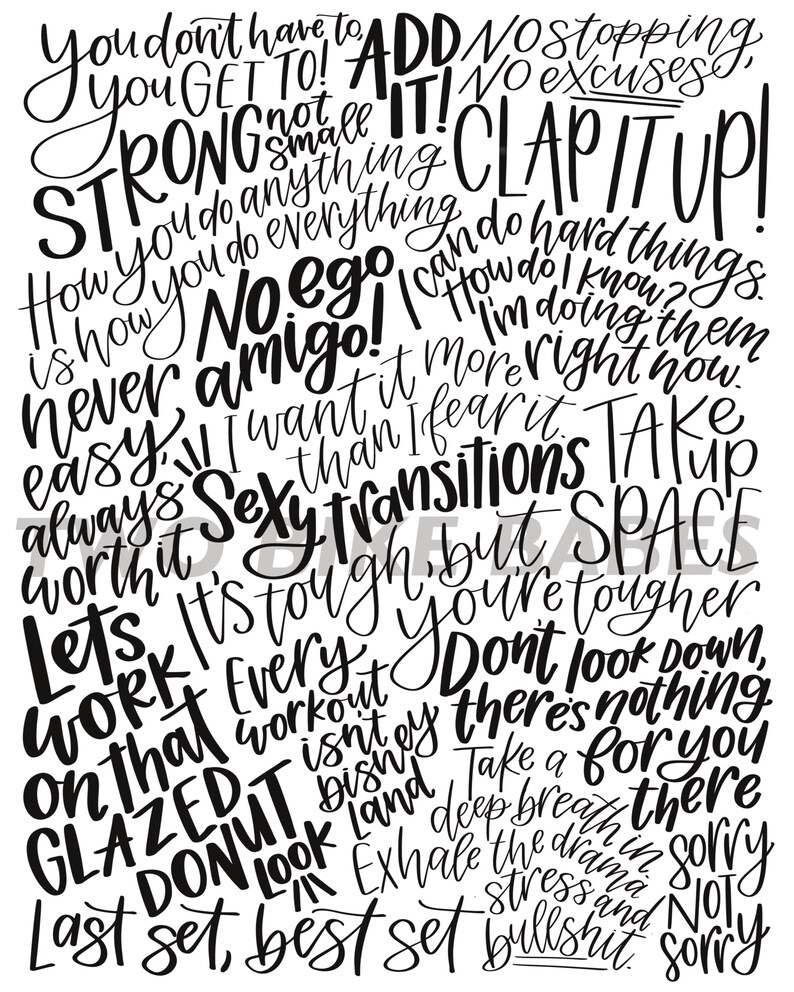 You don't have to,
you GET TO!
ADD
IT!
No stopping,
No excuses
STRONG not
small
CLAP IT UP!
How you do anything
is how you do everything
No ego
amigo!
I can do hard things.
How do I know?
I'm doing them
right now.
never
easy,
always
worth it
I want it more
than I fear it.
TAKe
up
SPACE
Sexy transitions
It's tough, but
you're tougher
Lets
work
on that
GLAZED
DONUT
LOOK
Every
workout
isn't
Disney
Land
Don't look down,
there's nothing
for you
there
Take a
deep breath in.
Exhale the drama
stress and
bullshit.
sorry
NOT
sorry
Last set, best set
TWO BIKE BABES